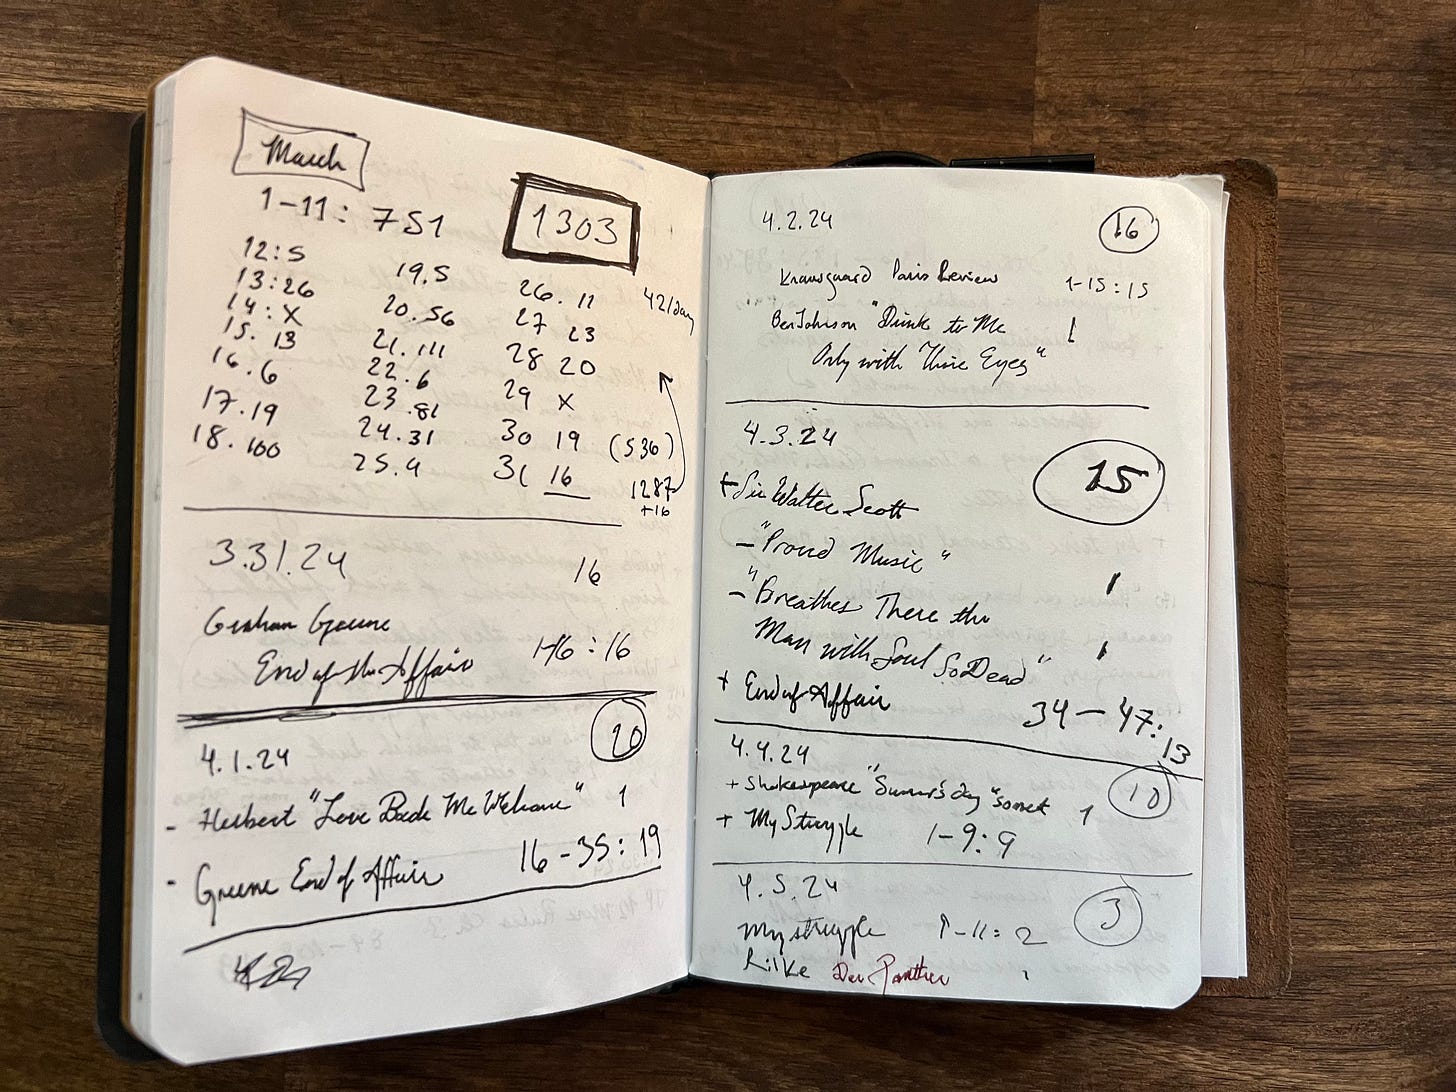 March
1-11: 751
1303
12:5
13:26
14:X
15. 13
16.6
17.19
18.100
19.5
20.56
21.111
22.6
23.81
24.31
25.4
26.11
27 23
28 20
29 X
30 19
31 16
42/day
(536)
1287
+16
3.31.24 16
Graham Greene
End of the Affair 1-16:16
4.1.24 20
- Herbert "Love Bade Me Welcome" 1
- Greene End of Affair 16-35:19
4.2.24 16
Knausgaard Paris Review 1-15:15
Ben Johnson "Drink to Me 1
Only with Thine Eyes"
4.3.24 15
+ Sir Walter Scott
- "Proud Music" 1
- "Breathes There the
Man with Soul So Dead" 1
+ End of Affair 34-47:13
4.4.24 10
+ Shakespeare "Summer's day" sonnet 1
+ My Struggle 1-9:9
4.5.24 3
My struggle 9-11:2
Rilke Der Panther